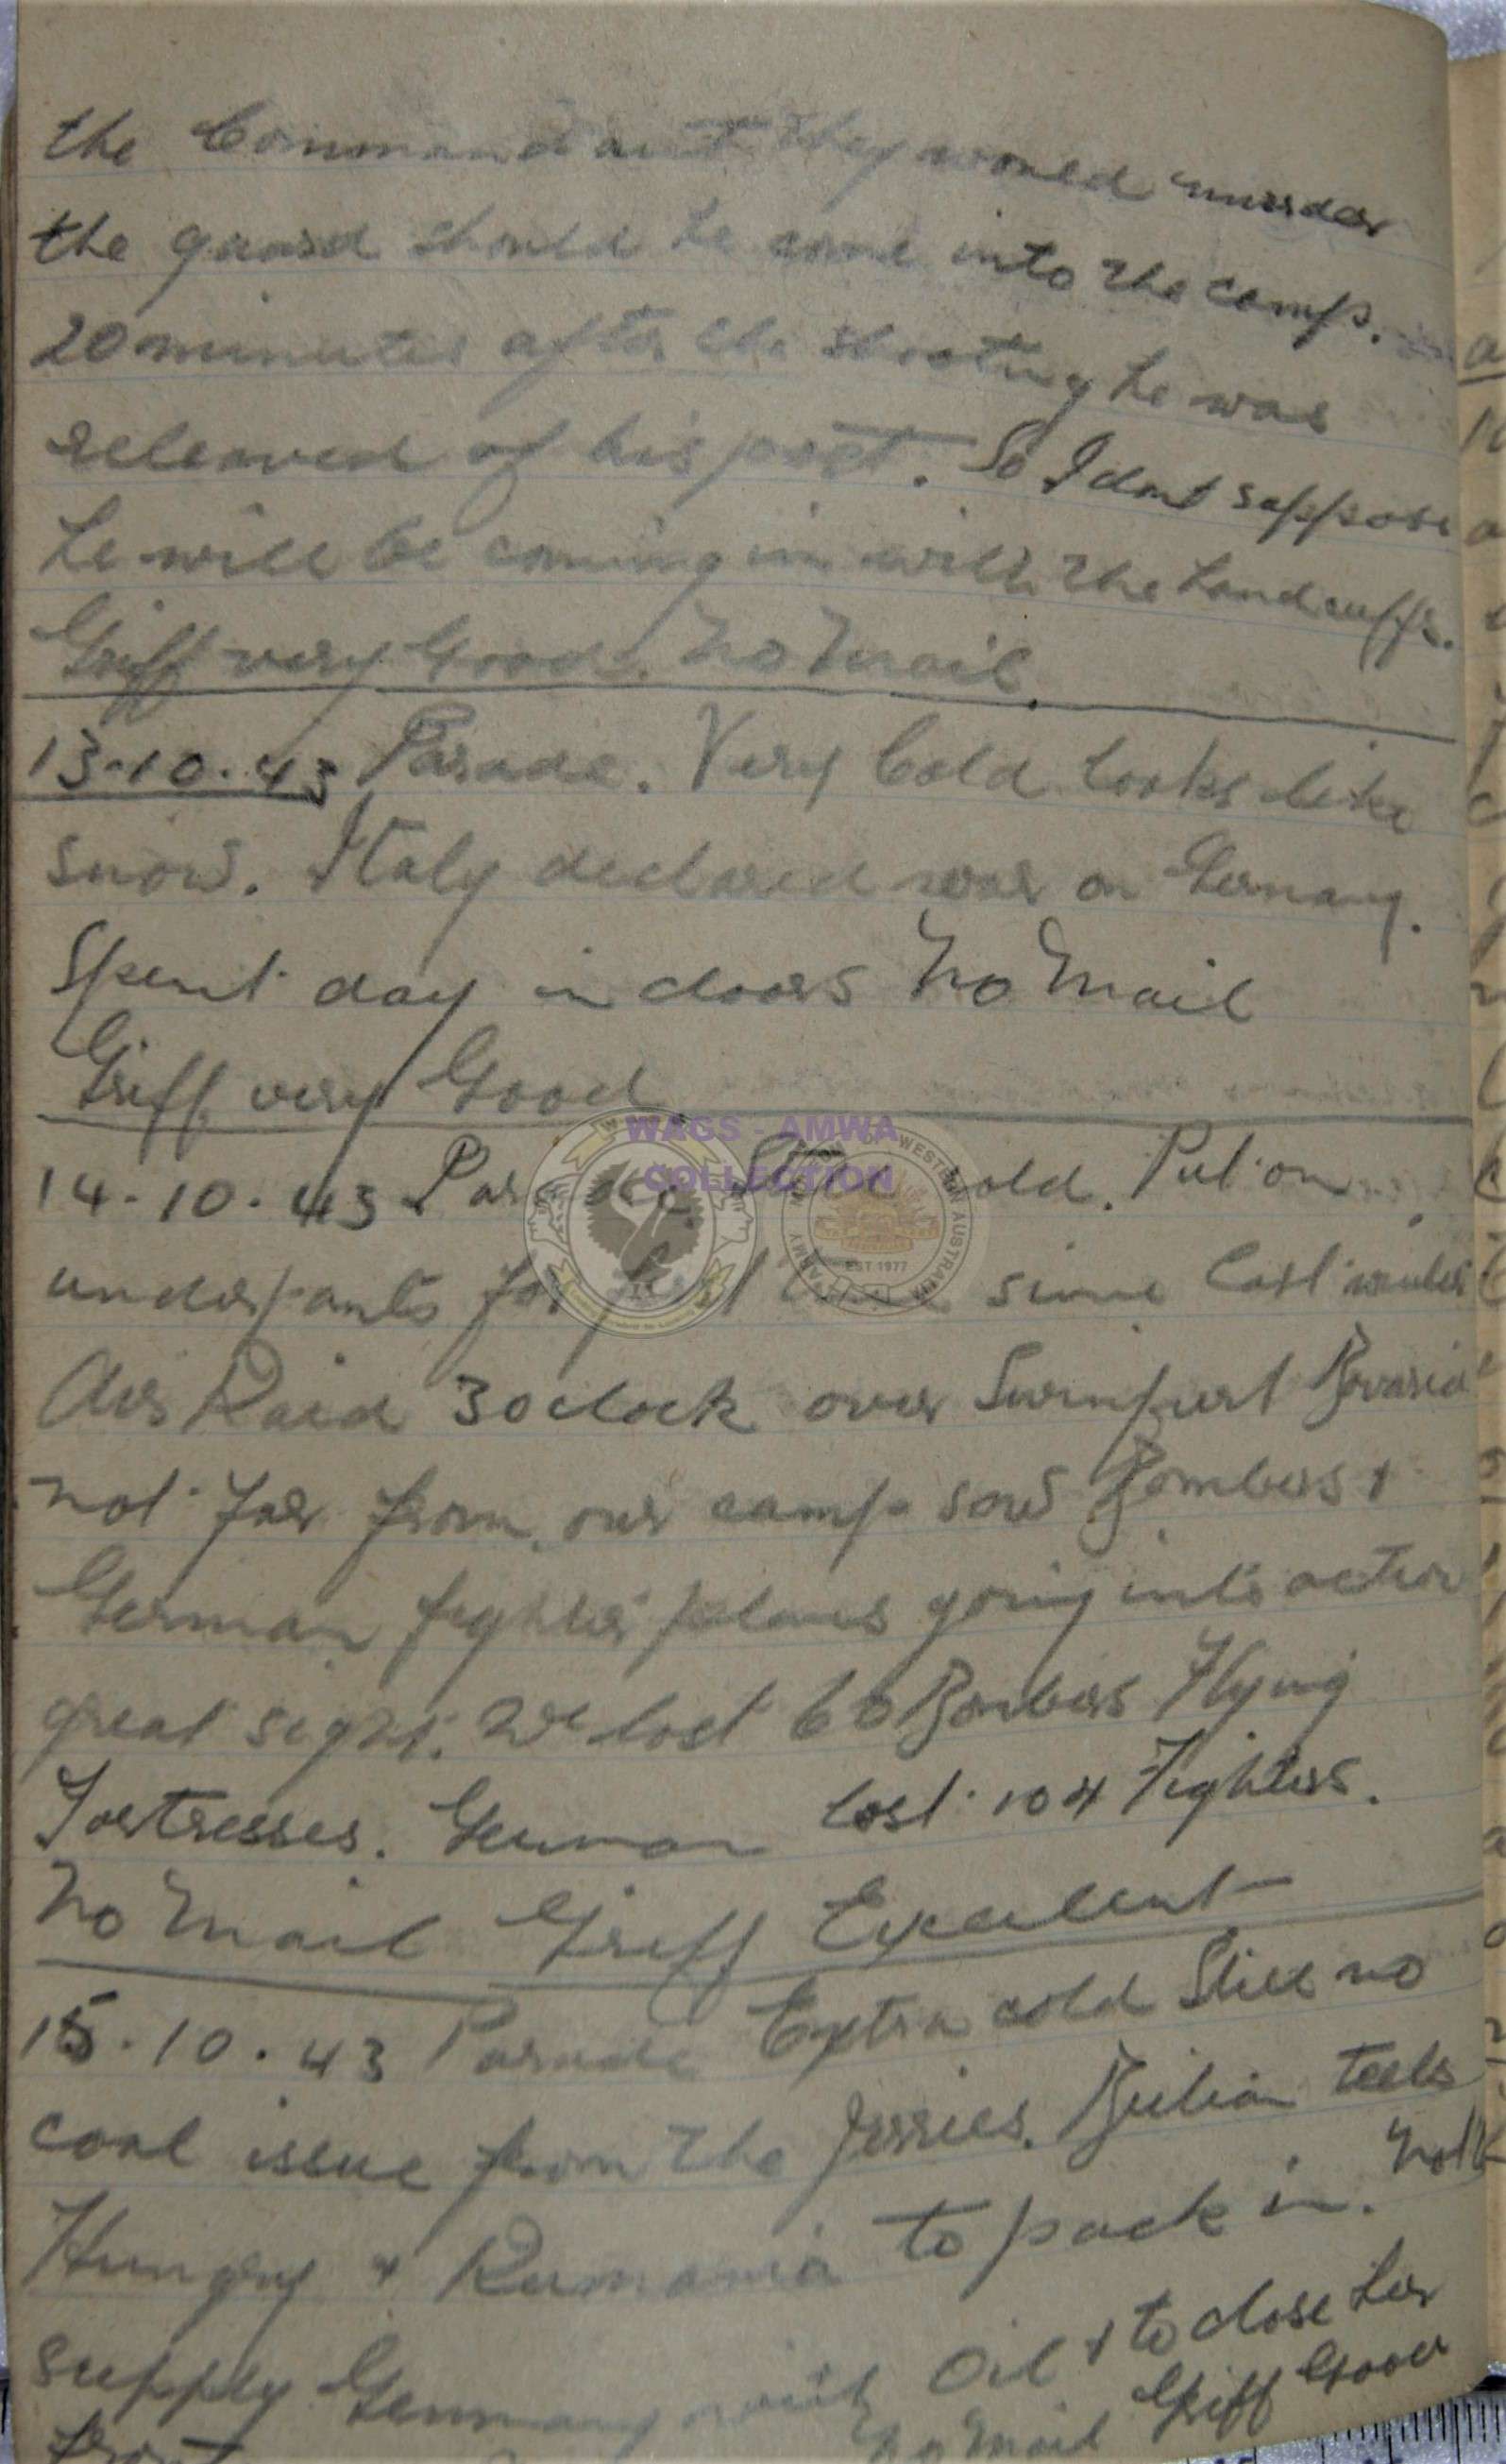 the Commandant they would murder
the guard should he come into the camp.
20 minutes after the shooting he was
releaved of his post. So I dont suppose
he will be coming in with the handcuffs.
Griff very Good. No Mail
13.10.43 Parade. Very Cold looks like
snow. Italy declared war on Germany.
Spent day in doors No Mail
Griff very Good
WAGS - AMWA
COLLECTION
14.10.43 Parade. Cold. Put on
underpants for first time since last winter
Air Raid 3 oclock over Swinfurt Bavaria
not far from our camp saw Bombers &
German fighter planes going into action
great sight. We lost 60 Bombers Flying
Fortresses. German lost 104 Fighters.
No Mail Griff Excelent
15.10.43 Parade Extra cold Still no
coal issue from the Jerries. tells
Hungry & Rumania to pack in. Not to
supply Germany with Oil & to close her
front No Mail Griff Good
WESTERN AUSTRALIA
ARMY
EST 1977